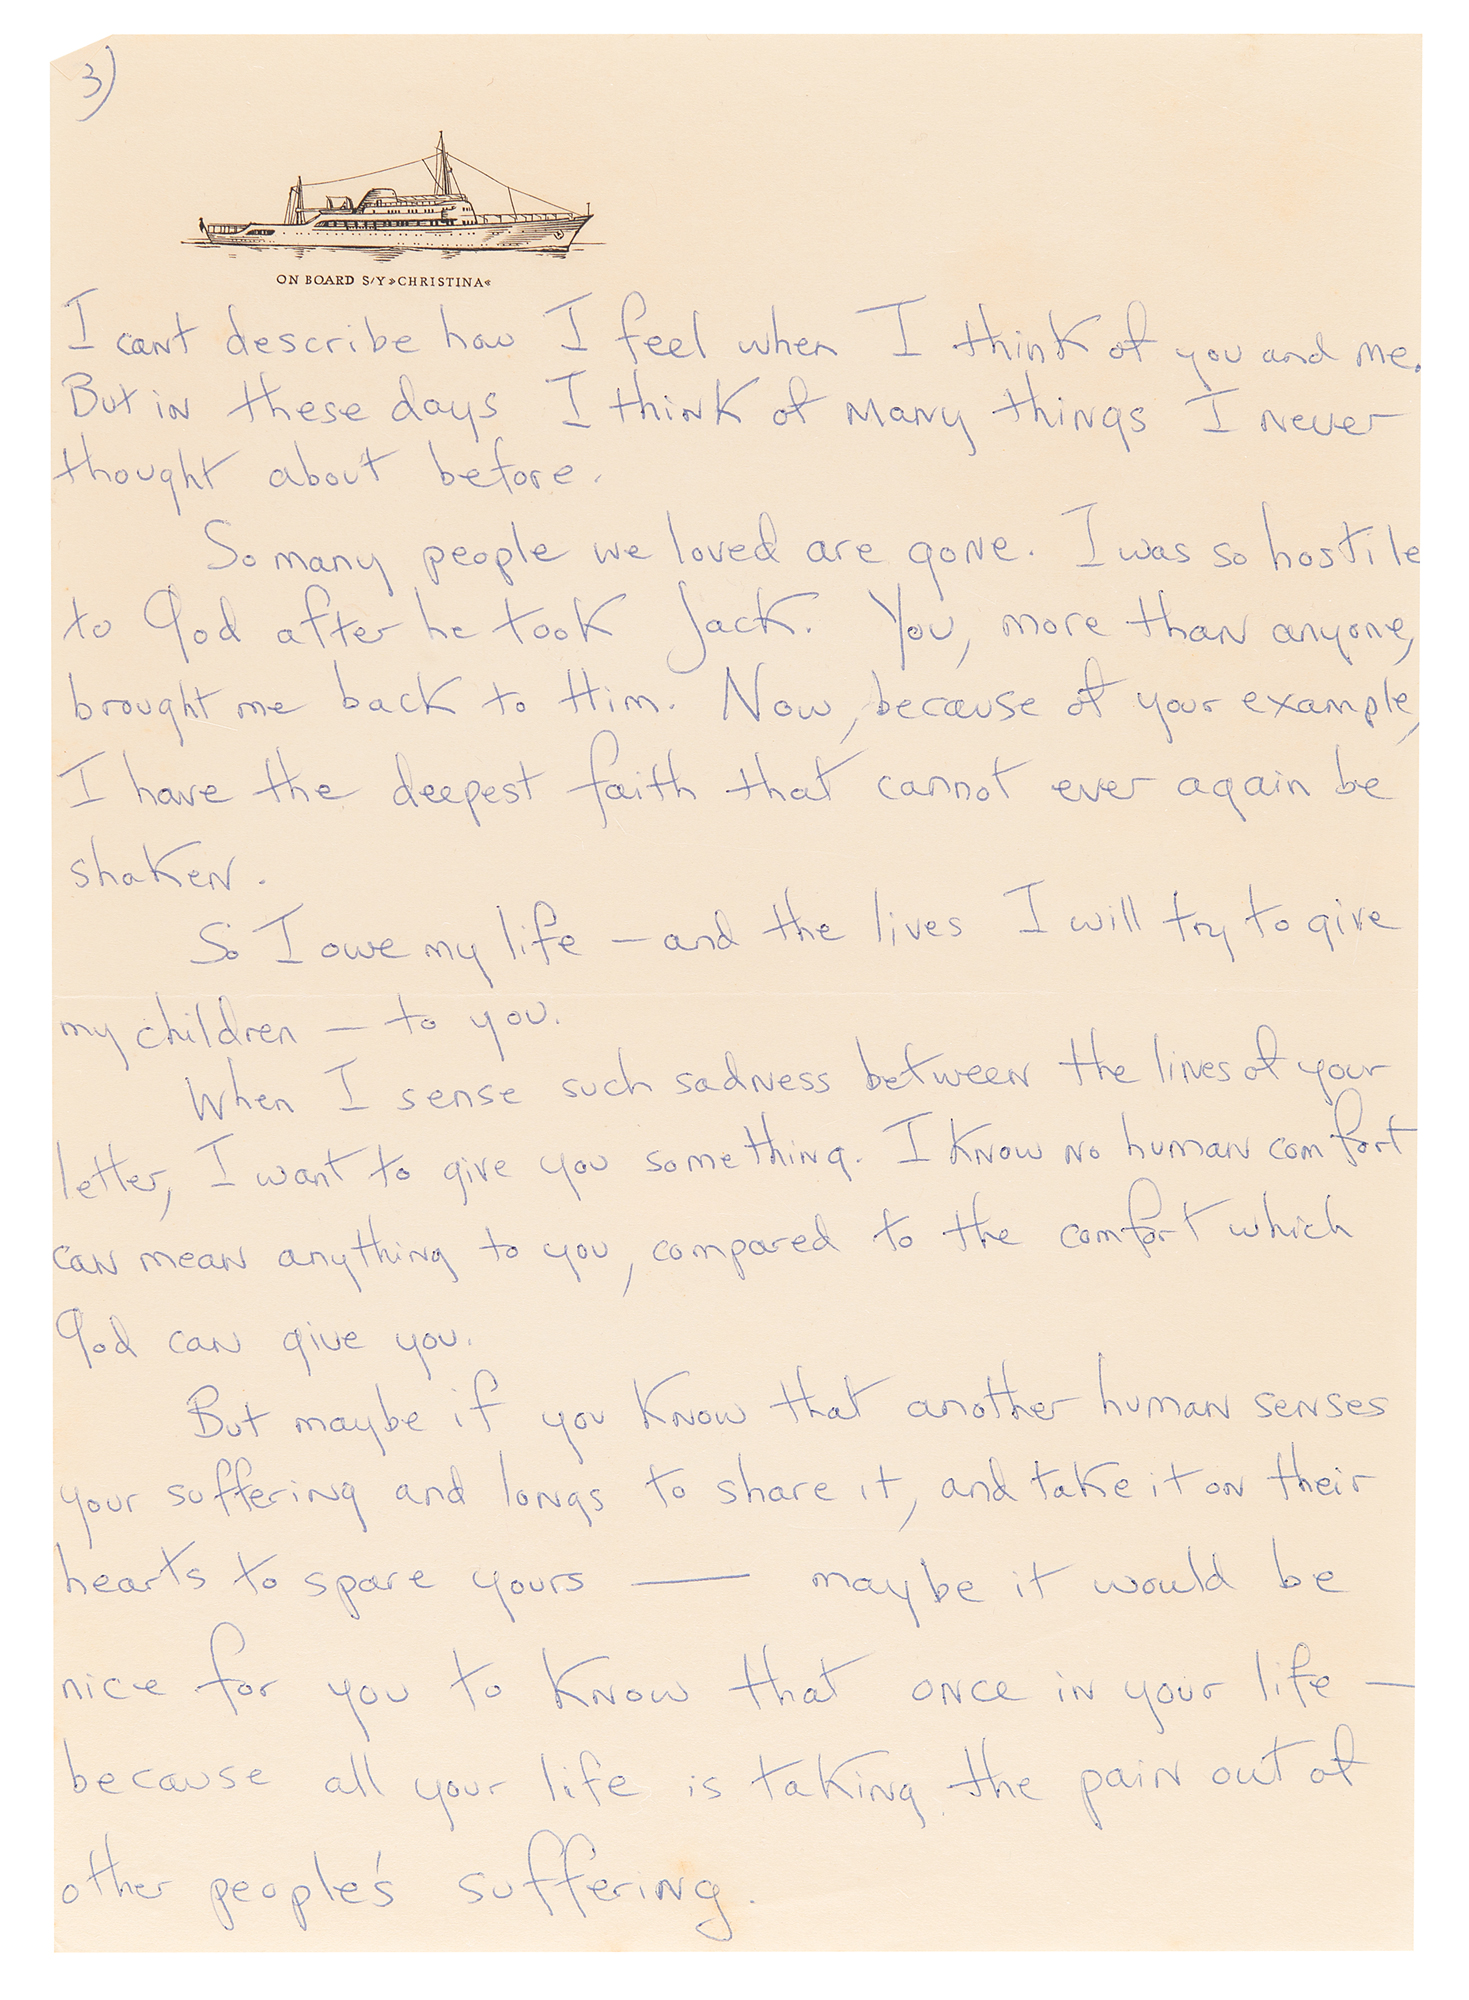 3)
ON BOARD S/Y »CHRISTINA«
I can't describe how I feel when I think of you and me.
But in these days I think of many things I never
thought about before.
So many people we loved are gone. I was so hostile
to God after he took Jack. You, more than anyone,
brought me back to Him. Now, because of your example,
I have the deepest faith that cannot ever again be
shaken.
So I owe my life – and the lives I will try to give
my children – to you.
When I sense such sadness between the lines of your
letter, I want to give you something. I know no human comfort
can mean anything to you, compared to the comfort which
God can give you.
But maybe if you know that another human senses
your suffering and longs to share it, and take it on their
hearts to spare yours — maybe it would be
nice for you to know that once in your life –
because all your life is taking the pain out of
other people's suffering.